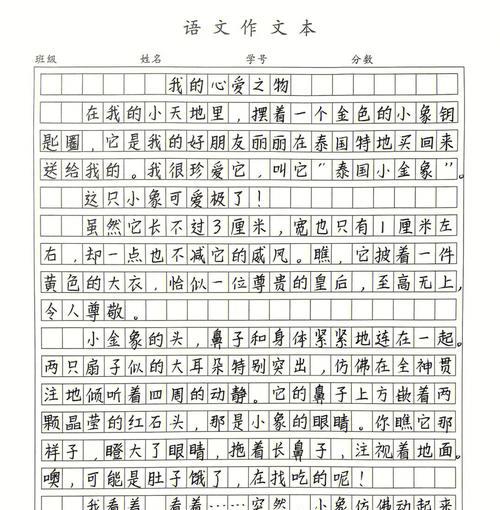 语文作文本
班级 姓名 学号 分数
我的心爱之物
在我的小天地里，摆着一个金色的小象钥
匙圈，它是我的好朋友丽丽在泰国特地买回来
送给我的。我很珍爱它，叫它“泰国小金象”。
这只小象可爱极了！
虽然它长不过3厘米，宽也只有1厘米左
右，却一点也不减它的威风。瞧，它披着一件
黄色的大衣，恰似一位尊贵的皇后，至高无上，
令人尊敬。
小金象的头，鼻子和身体紧紧地连在一起。
两只扇子似的大耳朵特别突出，仿佛在全神贯
注地倾听着四周的动静。它的鼻子上方嵌着两
颗晶莹的红石头，那是小象的眼睛。你瞧它那
样子，瞪大了眼睛，拖着长鼻子，注视着地面。
噢，可能是肚子饿了，在找吃的呢！
我看着，看着……突然，小象仿佛动起来